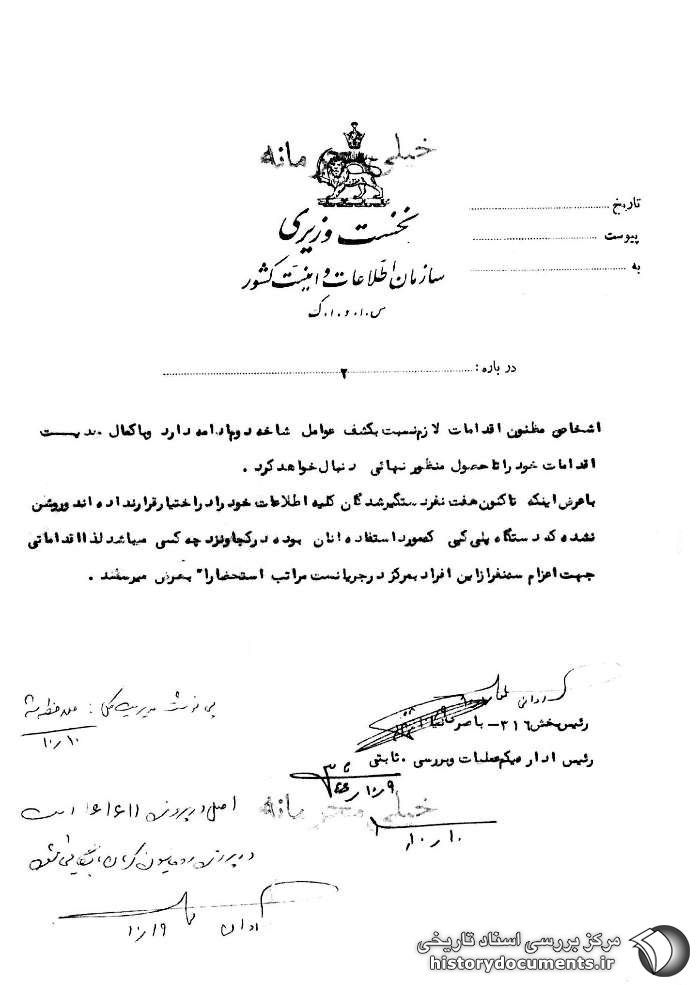 خیلی محرمانه
نخست وزیری
سازمان اطلاعات و امنیت کشور
س.ا.و.ا.ک
تاریخ
پیوست
به
درباره :
۲
اشخاص مظنون اقدامات لازم نسبت بکشف عوامل شاخه دوم ادامه دارد وباکمال جدیست
اقدامات خود را تا حصول منظور نهائی دنبال خواهد کرد .
باعرض اینکه تاکنون هفت نفر دستگیرشدگان کلیه اطلاعات خود را در اختیار قرارنداده اند وروشن
نشده که دستگاه پلی کپی که مورد استفاده انان بوده در کجا ونزد چه کسی میباشد لذا اقداماتی
جهت اعزام سه نفر از این افراد بمرکز در جریانست مراتب استحضارا" بعرض میرسد .
رئیس بخش ۳۱۶-
رئیس اداره یکم عملیات وبررسی . ثابتی
۹ر۱۰ر۴۶
۱۰ر۱۰
خیلی محرمانه
پی نوشت مدیریت کل : ملاحظه شد
۱۰ر۱۰
اصل در پرونده ۱۶۱۶۱۱ است
در پرونده
۱۹ر۱۰
مرکز بررسی اسناد تاریخی
historydocuments.ir